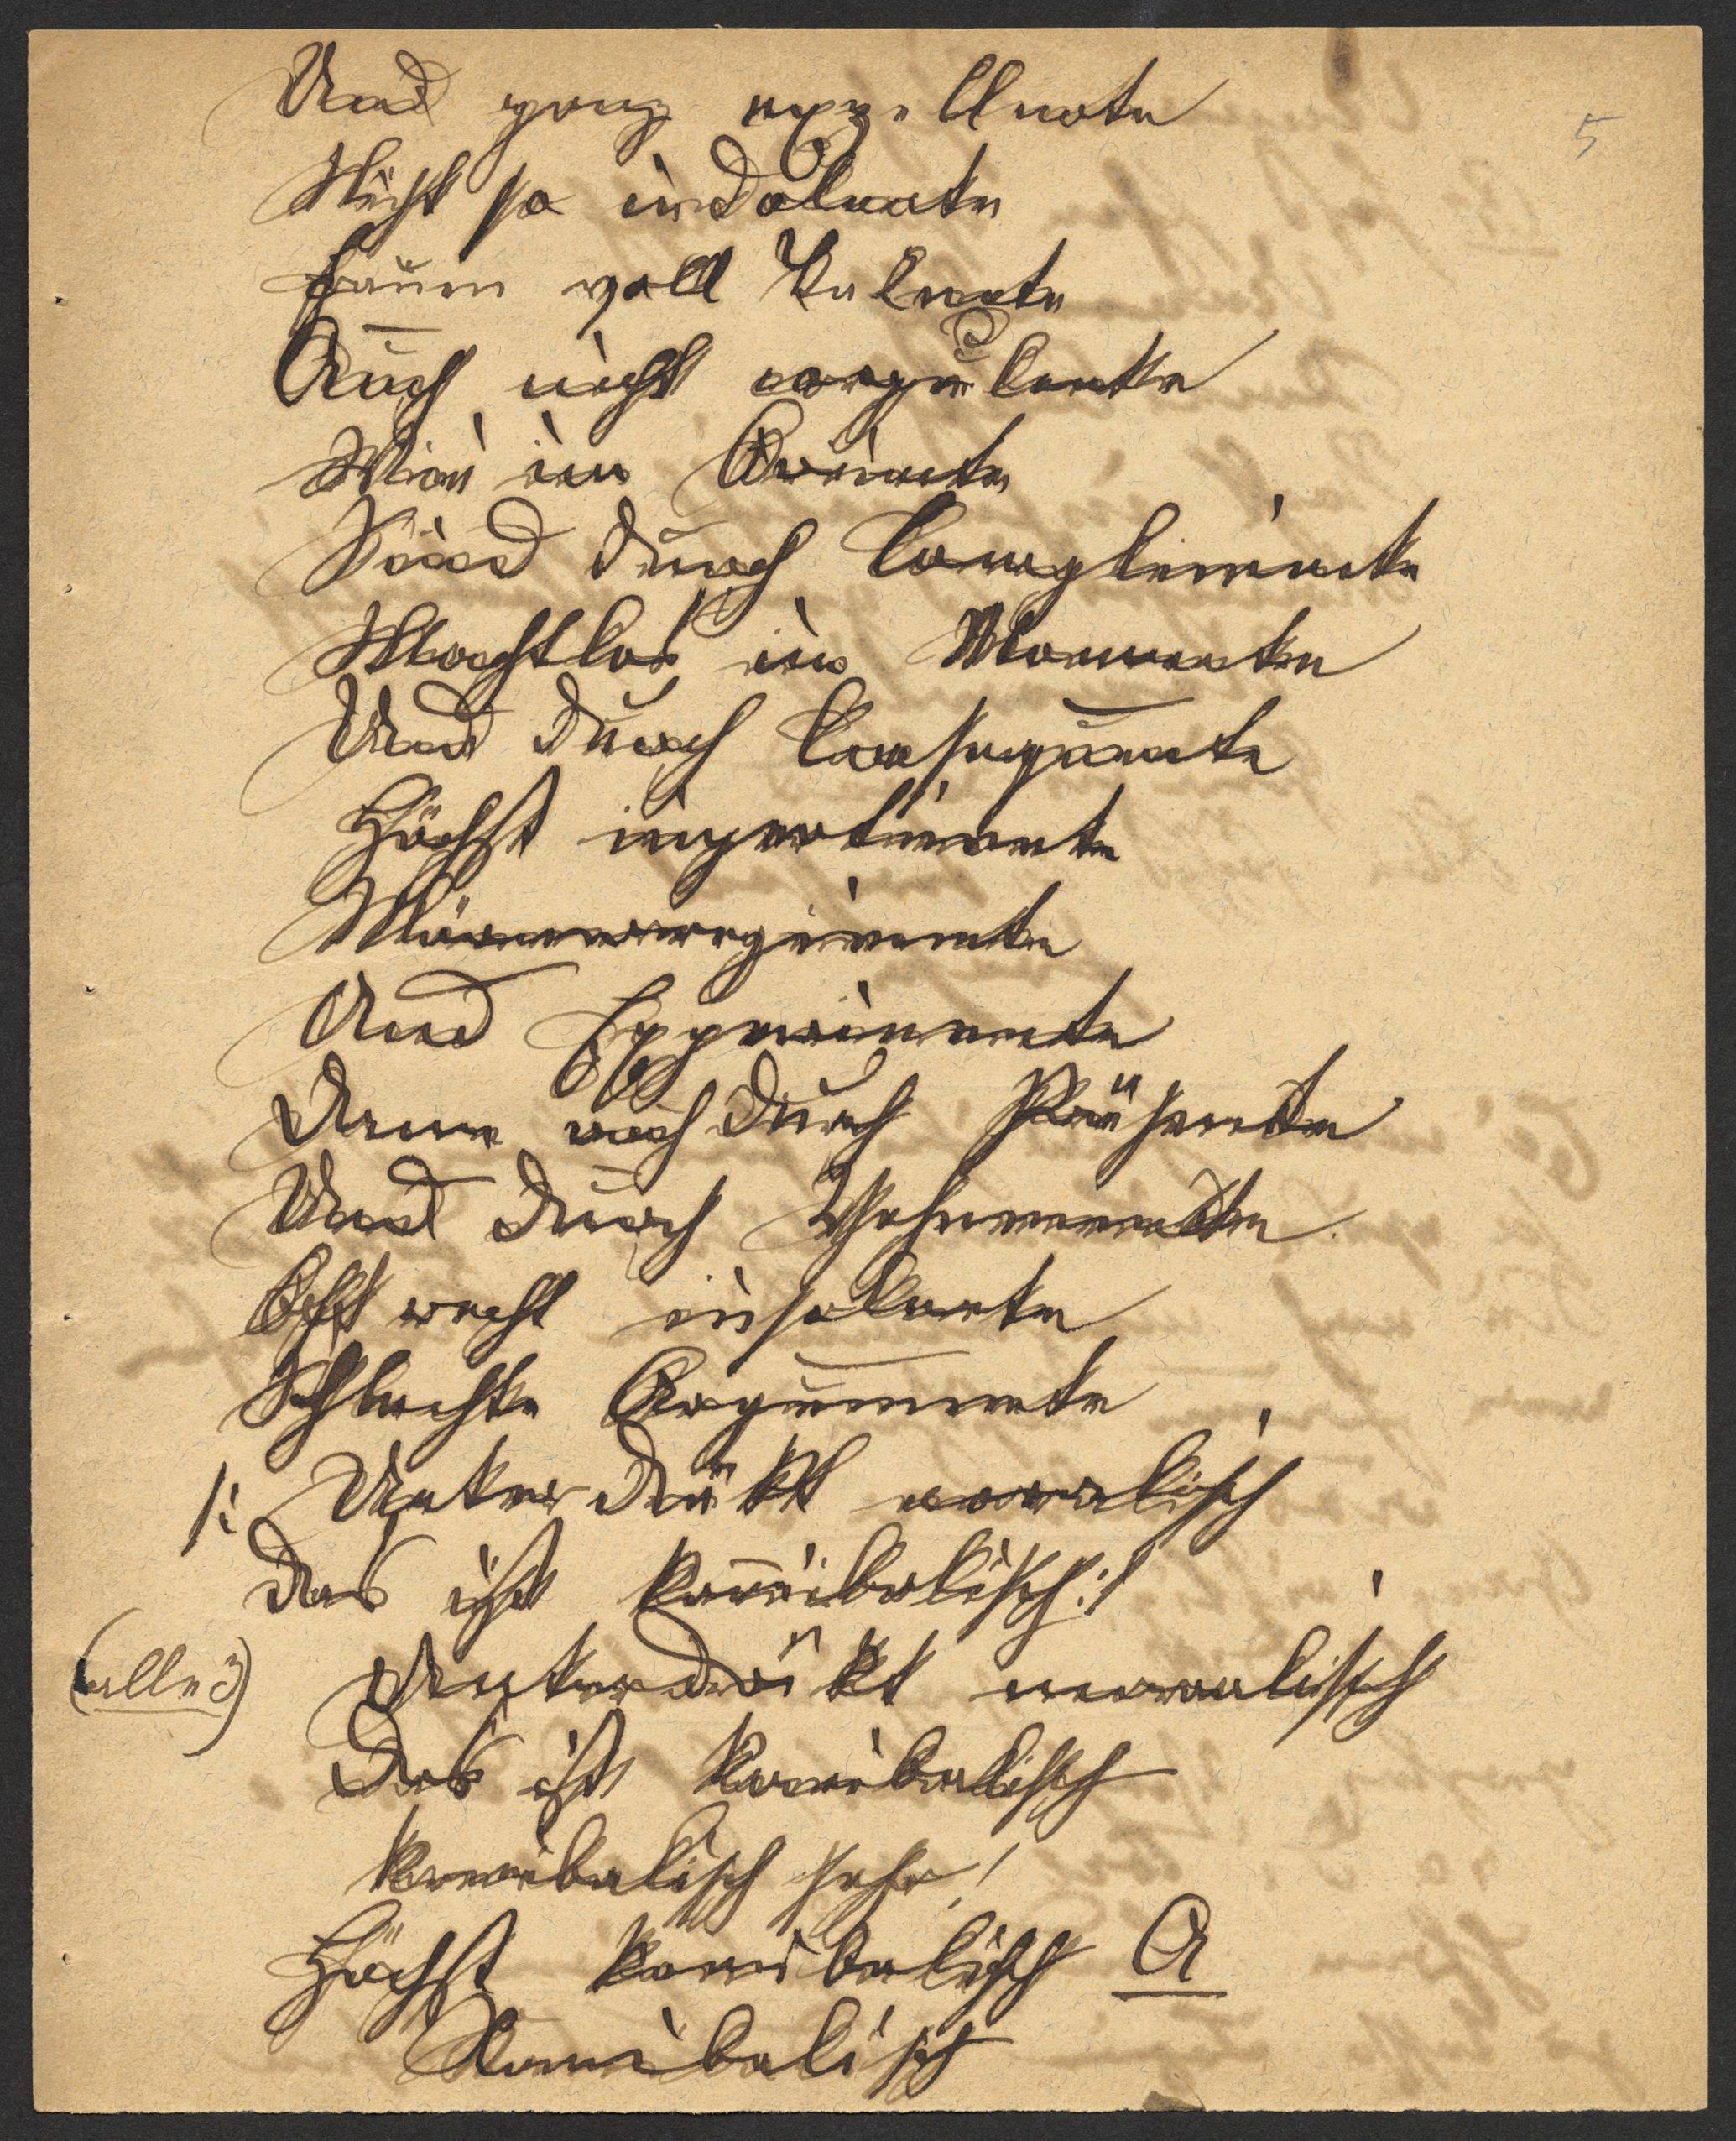 Und ganz exzellente
5
Nicht so indolente
Frauen voll Talente
Auch nicht corpulente
Wie im Oriente
Sind durch Complimente
Machtlos im Momente
Und durch Consequente
Höchst impertinente
Männerregimente
Und Experimente
Dann auch durch Präsente
Und durch Postamente
Oft recht insolente
Schlechte Argumente
/: Unterdrükt moralisch
das ist kannibalisch :/
(alle 3) Unterdrükt moralisch
Das ist kannibalisch
kannibalisch sehr!
Höchst kannibalisch A
Kannibalisch